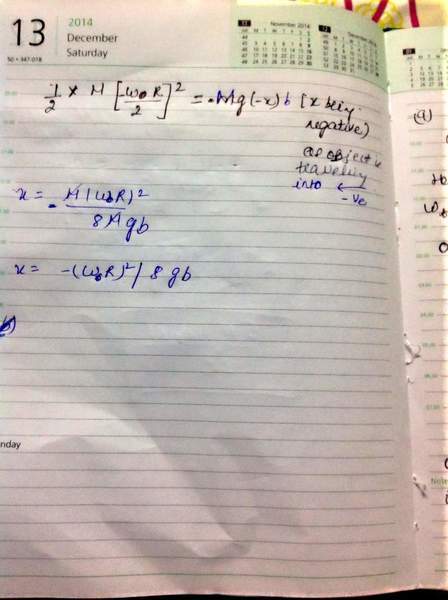 13
2014
December
Saturday
50 • 347-018
November 2014
1/2 × M [-ω₀R/2]² = -Mg(-x)b [x being
negative)
object is
travelling
into ←
-ve
x = - M(ω₀R)²/8Mgb
x = -(ω₀R)²/8gb
b)
nday
(a)
Notes